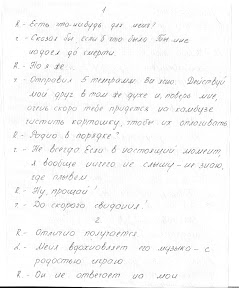 1
R - Есть что-нибудь для меня?
r - Сказал бы если б что было. Ты мне
надоел до смерти.
R - Но я же
r - Отправил 5 телеграмм. Вы знаю. Действуй
мой друг в том же духе и, поверь мне,
очень скоро тебе придется на камбузе
чистить картошку, чтобы их оплачивать
R - Радио в порядке?
r - Не всегда. Если в настоящий момент,
я вообще ничего не слышу - не знаю,
где плывем
R - Ну, прощай!
r - До скорого свидания!
2
R - Отлично получается
L - Меня вдохновляет то музыка - с
радостью играю
R - Он не отвечает на мои